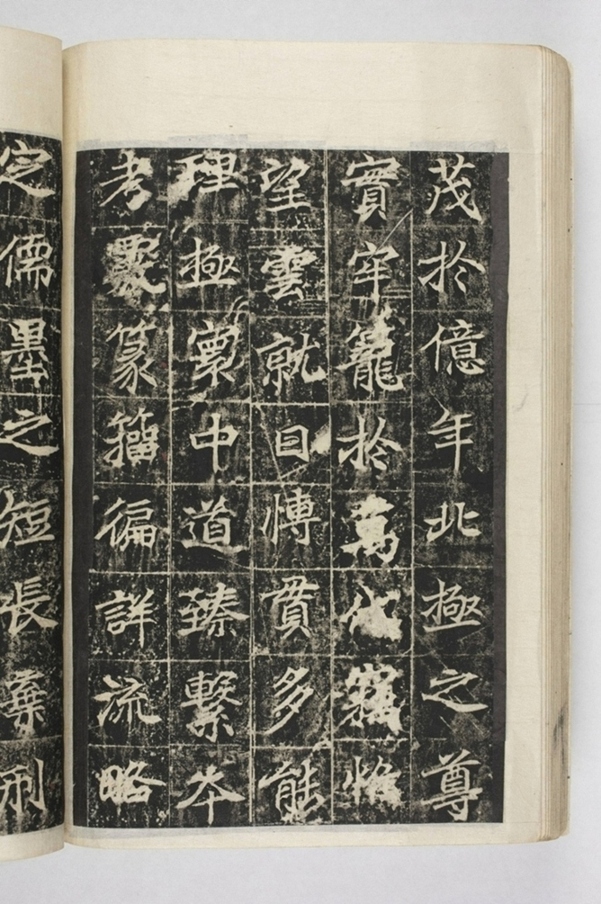 茂扵億年北極之尊
實牢籠扵萬代竊惟
望雲就日愽貫多能
理極寰中道臻繫夲
考覈篆籀徧詳流略
定儒墨之短長棄刑